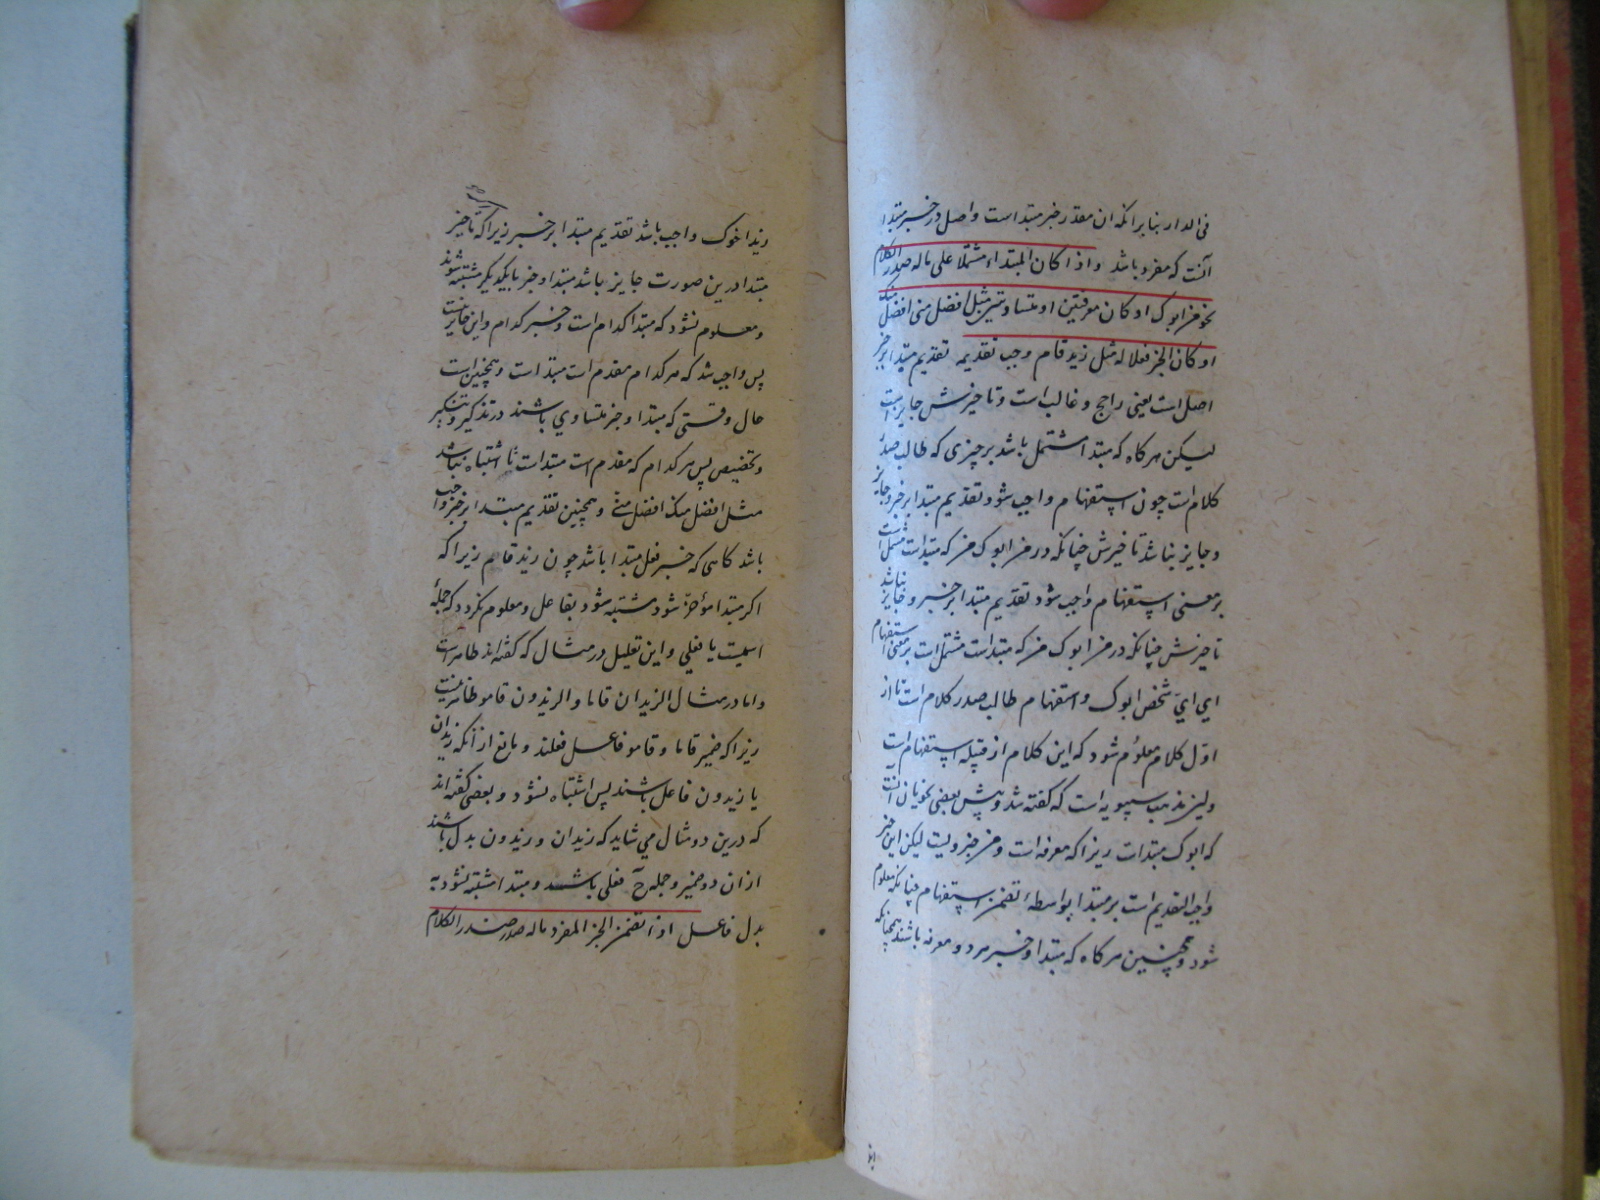 فی الدار بنابرانکه ان مقدر خبر مبتداست و اصل در خبر مبتدا
آنست که مفرد باشد و اذا کان المبتداء مشتملا علی ماله صدر الکلام
نحو من ابوک او کان معرفتین او متساویتین مثل افضل منی افضل منک
او کان الخبر فعلا له مثل زید قام وجب تقدیمه تقدیم مبتدا بر خبر
اصل است یعنی راجح و غالب است و تاخیرش جایز است
لیکن هرکاه که مبتدا مشتمل باشد بر چیزی که طالب صدر
کلام است چون استفهام واجب شود تقدیم مبتدا بر خبر و جایز
و جایز نباشد تاخیرش چنانکه در من ابوک من که مبتداست مشتمل است
بر معنی استفهام واجب شود تقدیم مبتدا بر خبر و جایز نباشد
تاخیرش چنانکه در من ابوک من که مبتداست مشتمل است بر معنی استفهام
ای ایّ شخص ابوک و استفهام طالب صدر کلام است تا از
اول کلام معلوم شود که این کلام از قبیله استفهام است
و این مذهب سیبویه است که گفته شد و پیش بعضی نحویان آنست
که ابوک مبتداست زیرا که معرفه است و من خبر ویست لیکن این خبر
واجب التقدیم است بر مبتدا بواسطهٔ تضمن استفهام چنانکه معلوم
شود و همچنین هرکاه که مبتدا و خبر هر دو معرفه باشند همچنانکه
زید اخوک واجب باشد تقدیم مبتدا بر خبر زیرا که تاخیر
مبتدا درین صورت جایز باشد مبتدا و خبر بایکدیکر مشتبه شوند
و معلوم نشود که مبتدا کدام است و خبر کدام و این جایز نیست
پس واجب شد که هر کدام مقدم است مبتداست و همچنین است
حال وقتی که مبتدا و خبر متساوی باشند در تذکیر و تنکیر
و تخصیص پس هر کدام که مقدم است مبتداست تا اشتباه نباشد
مثل افضل منک افضل منی و همچنین تقدیم مبتدا بر خبر واجب
باشد کاهی که خبر فعل مبتدا باشد چون زید قام زیرا که
اکر مبتدا مؤخر شود مشتبه شود بفاعل و معلوم نکردد که جملهٔ
اسمیت یا فعلی و این تعلیل در مثال که گفته اند ظاهر است
و اما در مثال الزیدان قاما و الزیدون قاموا ظاهر نیست
زیرا که ضمیر قاما و قاموا فاعل فعلند و مانع از آنکه زیدان
یا زیدون فاعل باشند پس اشتباه نشود و بعضی گفته اند
که درین دو مثال می شاید که زیدان و زیدون بدل باشند
از ان دو ضمیر و جمله ح فعلی باشد و مبتدا مشتبه نشود به
بدل فاعل اذا تضمن الخبر المفرد ماله صدر الکلام